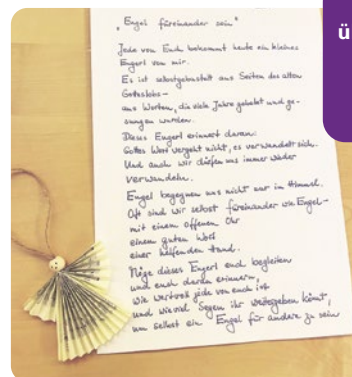 „Engel füreinander sein“
Jede von Euch bekommt heute ein kleines
Engerl von mir.
Es ist selbstgebastelt aus Seiten des alten
Gotteslobs –
aus Worten, die viele Jahre gebetet und ge-
sungen wurden.
Dieses Engerl erinnert daran:
Gottes Wort vergeht nicht, es verwandelt sich.
Und auch wir dürfen uns immer wieder
verwandeln.
Engel begegnen uns nicht nur im Himmel.
Oft sind wir selbst füreinander wie Engel –
mit einem offenen Ohr
einem guten Wort
einer helfenden Hand.
Möge dieses Engerl euch begleiten
und euch daran erinnern,
wie wertvoll jede von euch ist
und wieviel Segen ihr weitergeben könnt,
um selbst ein Engel für andere zu sein
ü